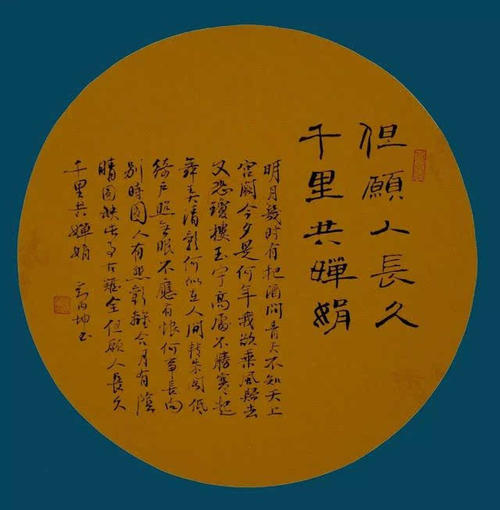 但願人長久
千里共嬋娟
明月幾時有把酒問青天不知天上
宮闕今夕是何年我欲乘風歸去
又恐瓊樓玉宇高處不勝寒起
舞弄清影何似在人間轉朱閣低
綺戶照無眠不應有恨何事長向
別時圓人有悲歡離合月有陰
晴圓缺此事古難全但願人長久
千里共嬋娟
坤书